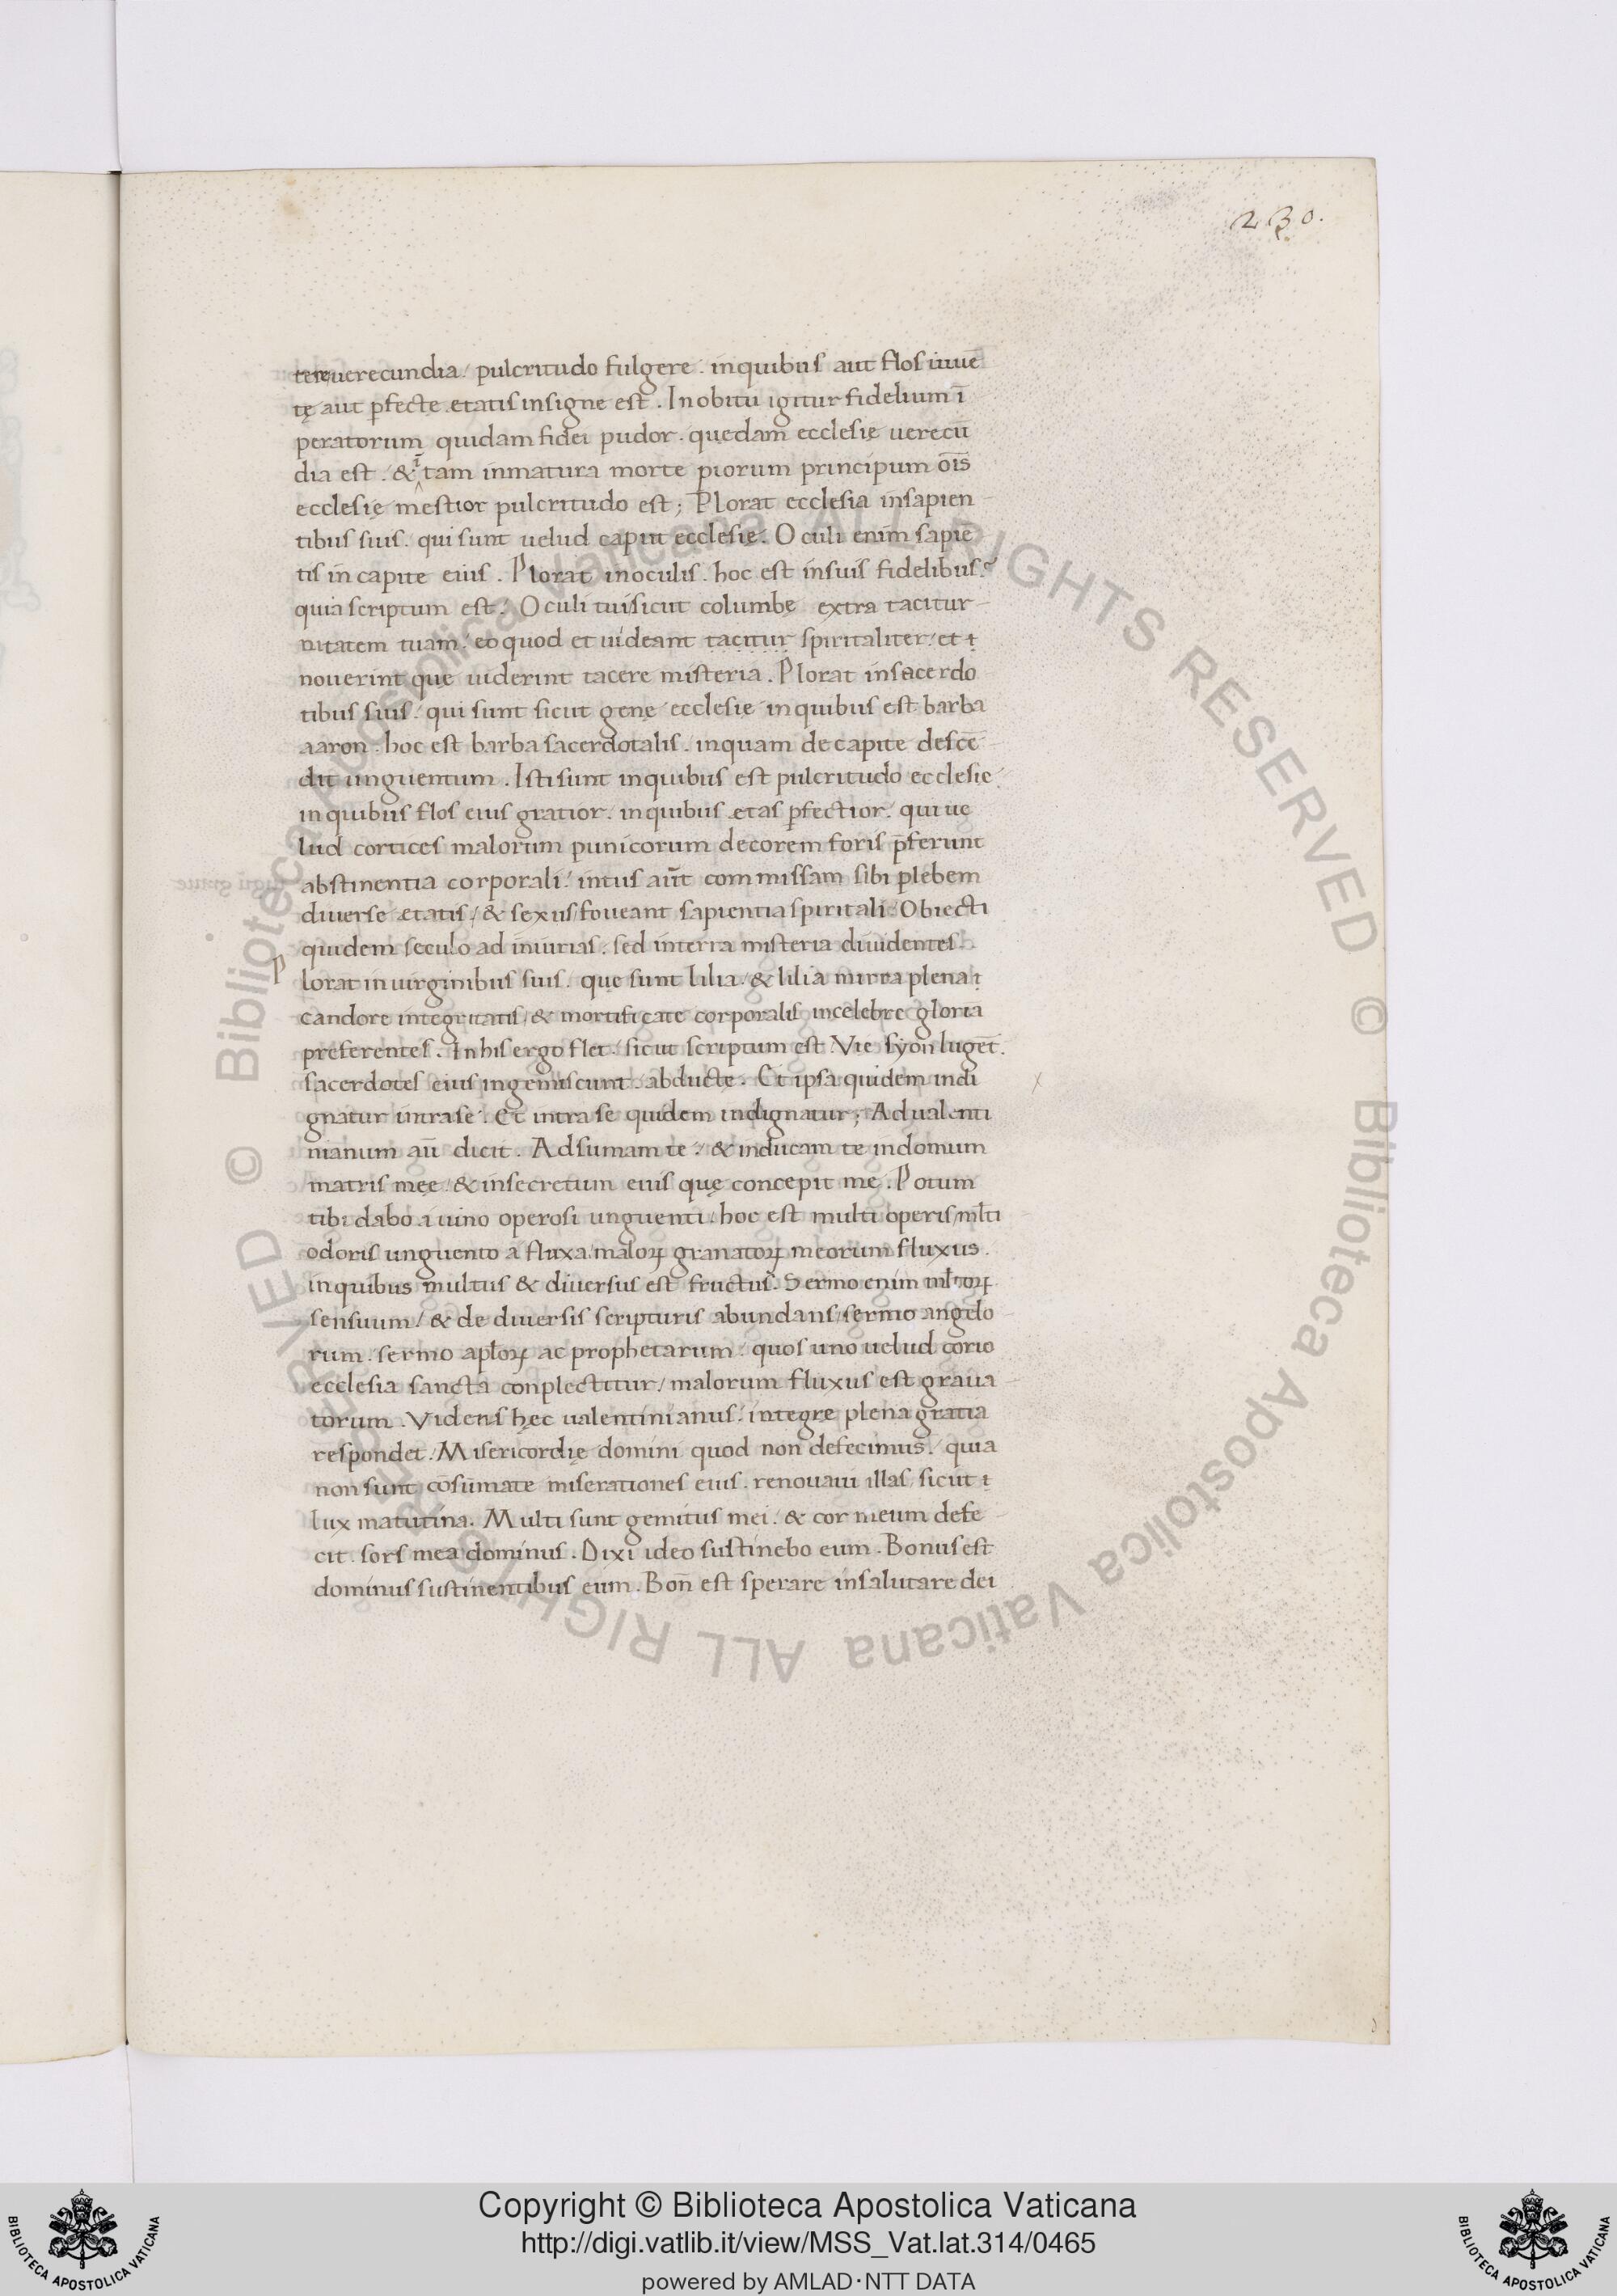 230.
tere uerecundia / pulcritudo fulgere . inquibus aut flos iuuē
tę aut ꝑfecte etatis insigne est . Inobitu igitur fidelium ī
peratorum quidam fidei pudor . quedam ecclesię uerecū
dia est . & ī tam inmatura morte piorum principum oīs
ecclesię mestior pulcritudo est ; Plorat ecclesia insapien
tibus suis . qui sunt uelud caput ecclesię . Oculi enim sapiē
tis in capite eius . Plorat inoculis . hoc est insuis fidelibus .
quia scriptum est . Oculi tui sicut columbę extra tacitur
nitatem tuam / eo quod et uideant tacitur spiritaliter / et
nouerint que uiderint tacere misteria . Plorat insacerdo
tibus suis / qui sunt sicut genę ecclesie inquibus est barba
aaron . hoc est barba sacerdotalis . inquam de capite descē
dit unguentum . Isti sunt inquibus est pulcritudo ecclesie
in quibus flos eius gratior . inquibus etas ꝑfectior . qui ue
lud cortices malorum punicorum decorem foris p̄ferunt
abstinentia corporali / intus aūt commissam sibi plebem
diuerse etatis / & sexus / foueant sapientia spiritali . Obiecti
quidem seculo ad iniurias . sed interra misteria diuidentes .
P
lorat in uirginibus suis . quę sunt lilia / & lilia mirra plena
candore integritatis / & mortificate corporalis incelebre gloriā
preferentes . Inhis ergo flet / sicut scriptum est . Vie syon lugēt .
sacerdotes eius ingemiscunt . abductę . Et ipsa quidem indi
gnatur intra se . Et intra se quidem indignatur ; Ad ualenti
nianum aū dicit . Adsumam te / & inducam te indomum
matris męe / & insecretum eius quę concepit me . Potum
tibi dabo a uino operosi unguenti / hoc est multi operis / ml̄ti
odoris unguento a fluxa maloꝝ granatoꝝ meorum fluxus .
in quibus multus & diuersus est fructus . Sermo enim ml̄toꝝ
sensuum / & de diuersis scripturis abundans / sermo angelo
rum . sermo apl̄oꝝ ac prophetarum / quos uno uelud corio
ecclesia sancta conplectitur / malorum fluxus est graua
torum . Videns hęc ualentinianus / integre plena gratia
respondet . Misericordię domini quod non defecimus . quia
non sunt cōsūmate miserationes eius . renouaui illas / sicut
lux matutina . Multi sunt gemitus mei / & cor meum defe
cit . sors mea dominus . Dixi ideo sustinebo eum . Bonus est
dominus sustinentibus eum . Bon̄ est sperare insalutare dei
© Biblioteca Apostolica Vaticana ALL RIGHTS RESERVED © Biblioteca Apostolica Vaticana ALL RIGHTS RESERVED
BIBLIOTECA APOSTOLICA VATICANA
Copyright © Biblioteca Apostolica Vaticana
http://digi.vatlib.it/view/MSS_Vat.lat.314/0465
powered by AMLAD·NTT DATA
BIBLIOTECA APOSTOLICA VATICANA